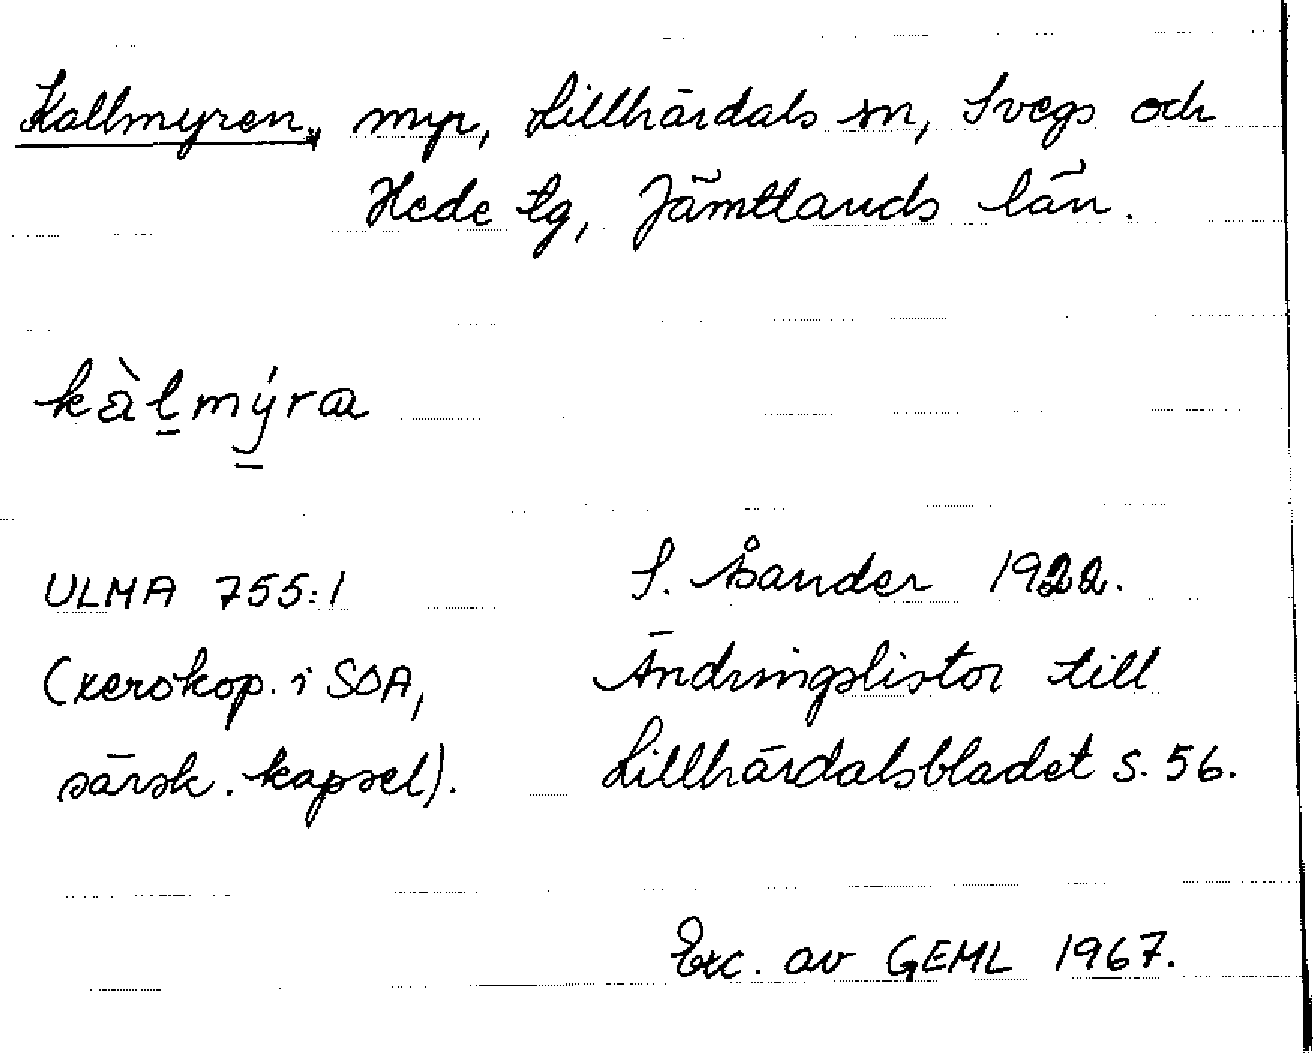 Kallmyren, myr, Lillhärdals sn, Svegs och
Hede tg, Jämtlands län.
kàl̲mý̲ra
ULMA 755:1
(xerokop. i SOA,
särsk. kapsel).
S. Åsander 1922.
Ändringslistor till
Lillhärdalsbladet s. 56.
Exc. av GEML 1967.